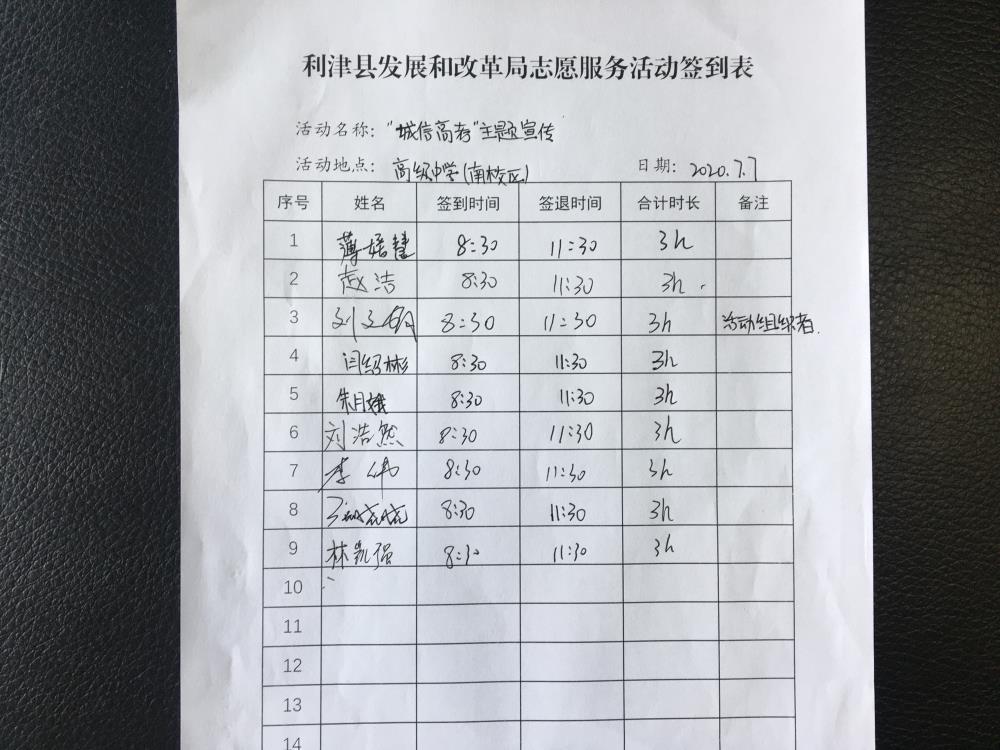 利津县发展和改革局志愿服务活动签到表
活动名称：“城信高考”主题宣传
活动地点：高级中学（南校区） 日期：2020.7.7
序号 姓名 签到时间 签退时间 合计时长 备注
1 薄 慧 8:30 11:30 3h
2 赵浩 8:30 11:30 3h
3 刘文 8:30 11:30 3h 活动组织者.
4 闫绍彬 8:30 11:30 3h
5 朱月娥 8:30 11:30 3h
6 刘浩然 8:30 11:30 3h
7 李伟 8:30 11:30 3h
8 8:30 11:30 3h
9 林凯强 8:30 11:30 3h
10
11
12
13
14